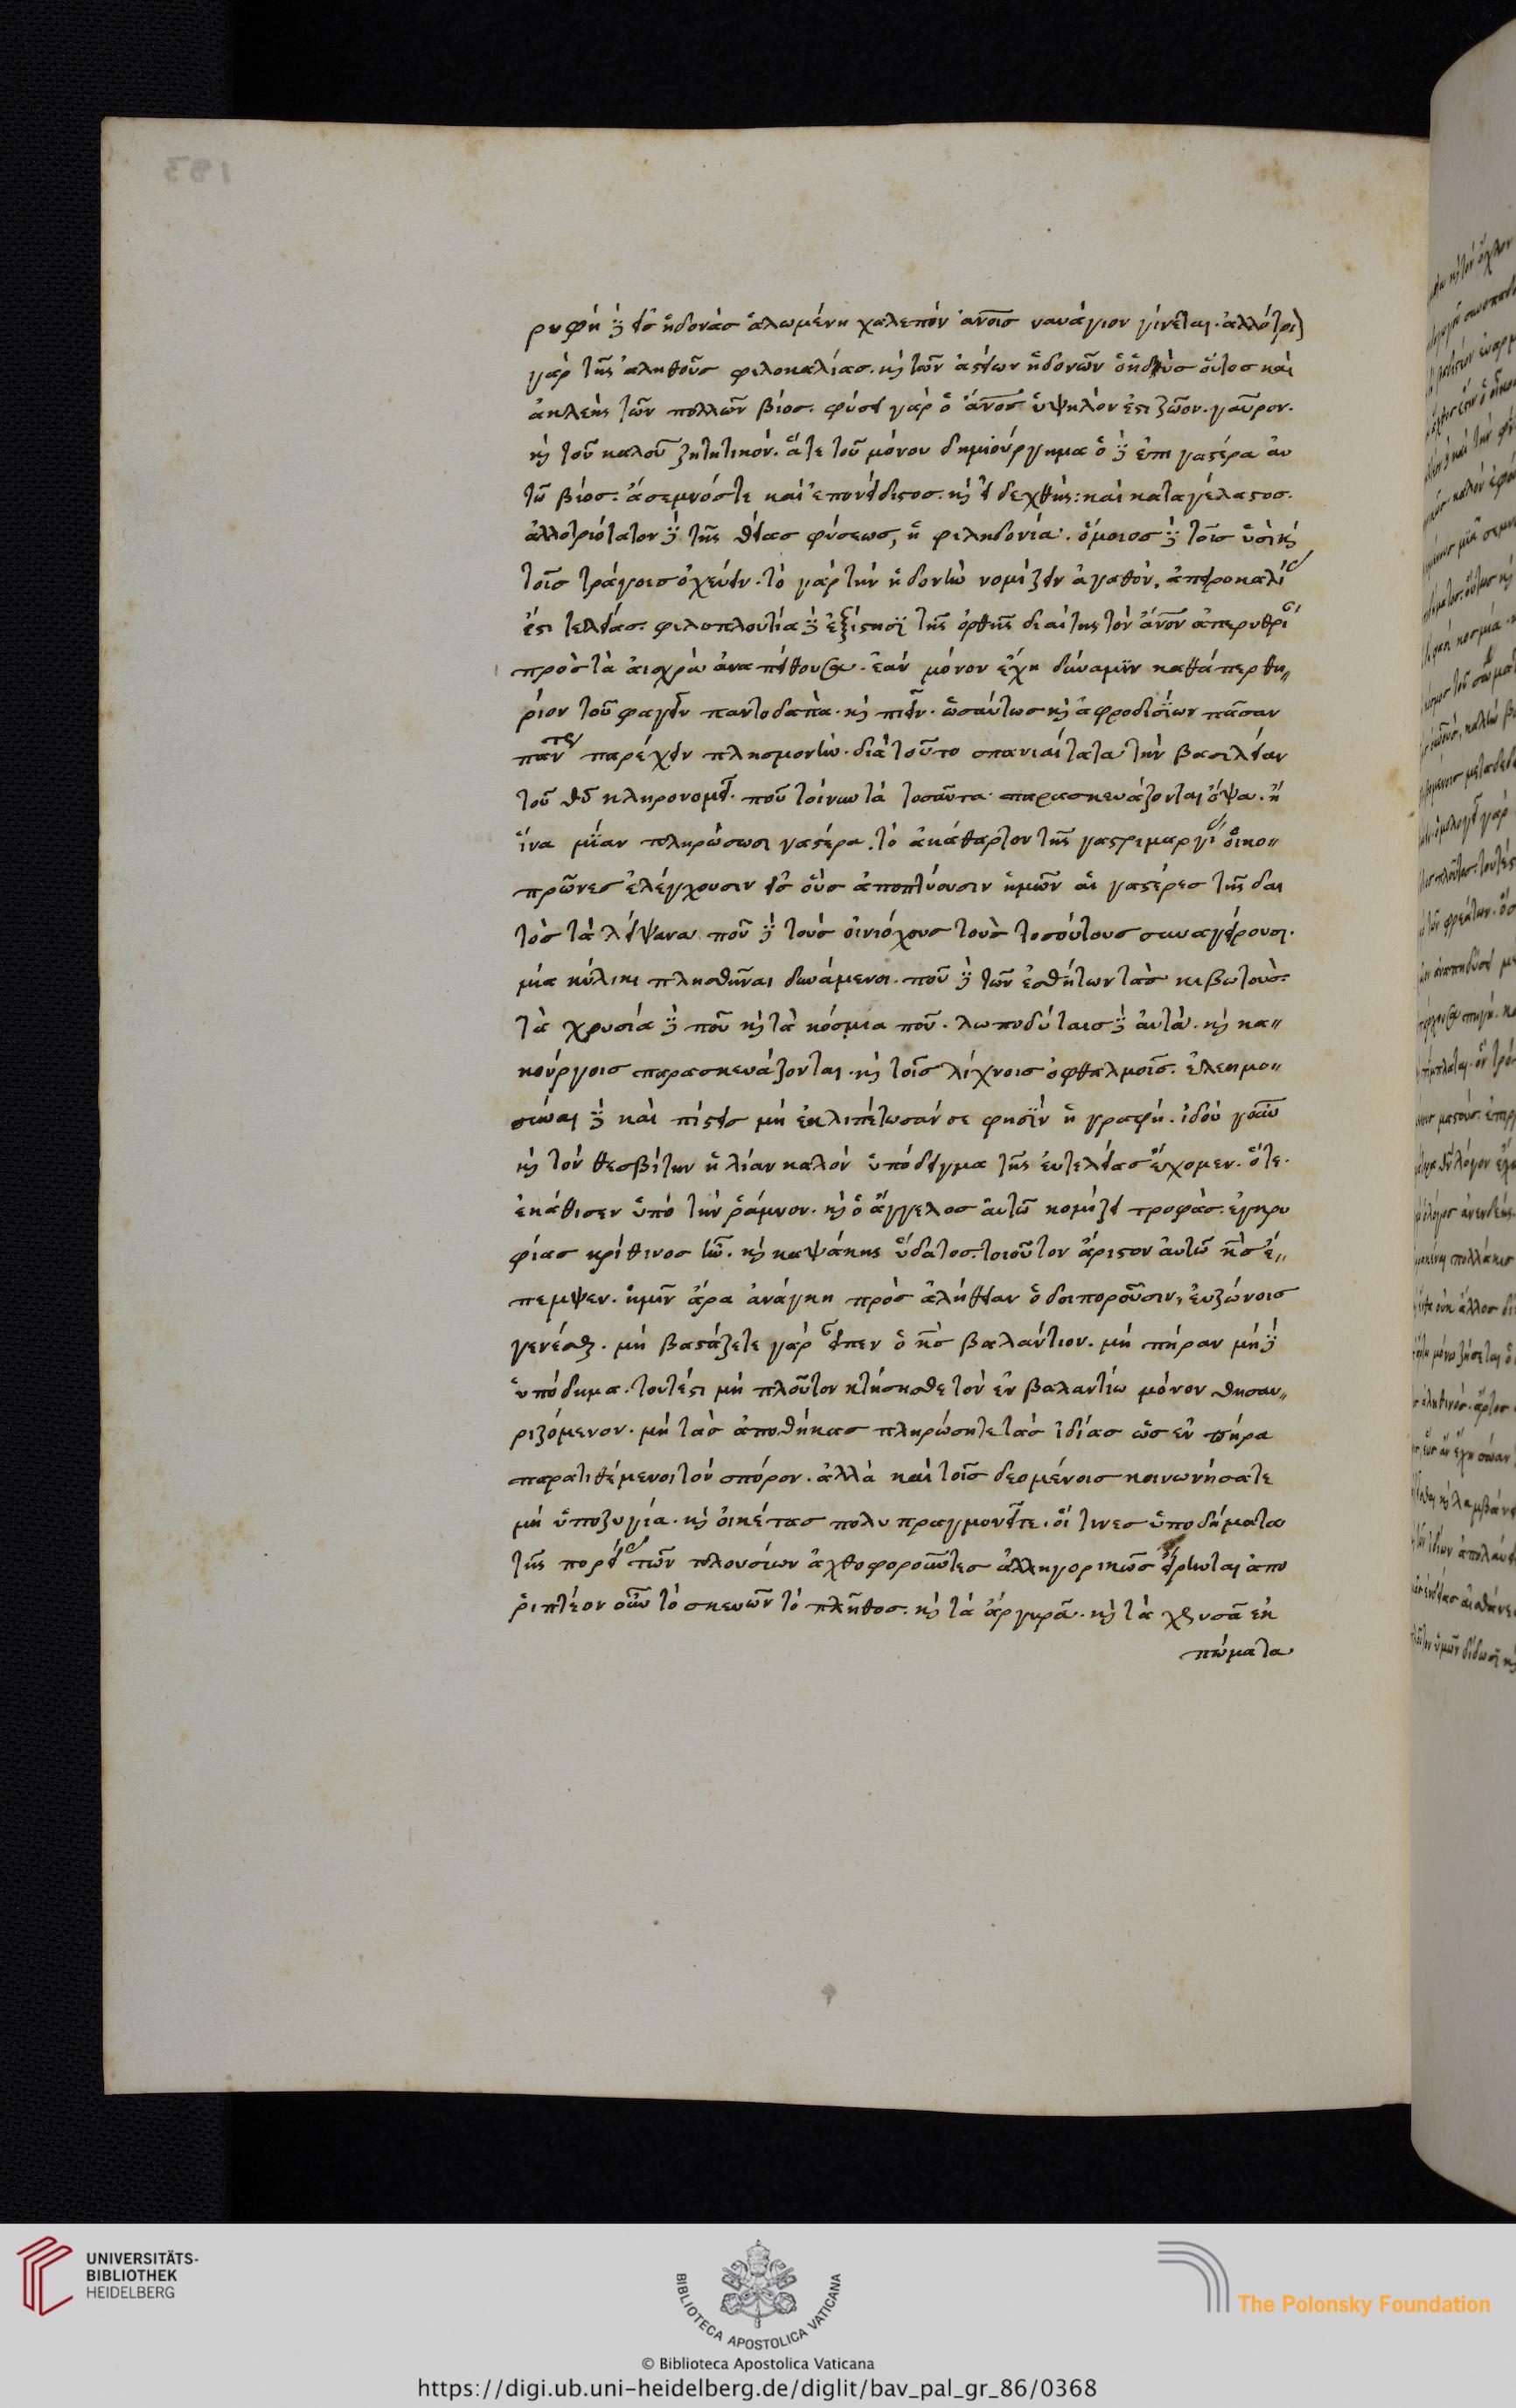 ρυφὴ δὲ εἰς ἡδονὰς ἁλωμένη χαλεπὸν ἀνοις ναυάγιον γίνεται. ἀλλότρι
γὰρ τῆς ἀληθοῦς φιλοκαλίας. κὴ τῶν ἀστείων ἡδονῶν ὁ ἡδὺς οὗτος καὶ
ἀκλεὴς τῶν πολλῶν βίος. φύσει γὰρ ὁ ἄνος ὑψηλόν ἐστι ζῶον. γαῦρον.
κὴ τοῦ καλοῦ ζητητικόν. ἅτε τοῦ μόνου δημιούργημα ὁ δὲ ἐπὶ γαστέρα αυ
τῶ βίος. ἄσεμνός τε καὶ ἐπονείδιστος. κὴ εἰδεχθής: καὶ καταγέλαστος.
ἀλλοτριότατον δὲ τῆς θείας φύσεως, ἡ φιληδονία. ὅμοιος δὲ τοῖς ὑσὶ κὴ
τοῖς τράγοις ὀχεύειν. τὸ γὰρ τὴν ἡδονὴν νομίζειν ἀγαθόν, ἀπειροκαλίας
ἐστι τελείας. φιλοπλουτία δὲ ἐξίστησϊ τῆς ὀρθῆς διαίτης τὸν ἄνον ἀπερυθρι
πρὸς τὰ αἰσχρὰ ἀναπείθουσα. ἐὰν μόνον ἔχη δύναμϊν καθάπερ θη
ρίον τοῦ φαγεῖν παντοδαπὰ. κὴ πιεῖν. ὡσαύτως κὴ ἀφροδισΐων πᾶσαν
πάντως παρέχειν πλησμονὴν. διὰ τοῦτο σπανιαίτατα τὴν βασιλείαν
τοῦ θῦ κληρονομεῖ. ποῦ τοίνυν τὰ τοσαῦτα παρασκευάζονται ὄψα. ἢ
ἵνα μΐαν πληρώσωσι γαστέρα. τὸ ἀκάθαρτον τῆς γαστριμαργίας οἱ κο
πρῶνες ἐλέγχουσιν εἰς οὓς ἀποπτύουσιν ἡμῶν αἱ γαστέρες τῆς δαι
τὸς τὰ λείψανα. ποῦ δὲ τοὺς οἰνοόχους τοὺς τοσούτους συναγείρουσι.
μία κύλικι πλησθῆναι δυνάμενοι. ποῦ δὲ τῶν ἐσθήτων τὰς κιβωτοὺς.
τὰ χρυσία δὲ ποῦ κὴ τὰ κόσμια ποῦ. λωποδύταις δὲ αὐτὰ. κὴ κα
κούργοις παρασκευάζονται. κὴ τοῖς λίχνοις ὀφθαλμοῖς. ἐλεημο
σύναι δὲ καὶ πίστεις μὴ ἐκλιπέτωσάν σε φησϊὶν ἡ γραφή. ἰδοὺ γοῦν
κὴ τὸν θεσβίτην ἠλίαν καλὸν ὑπόδειγμα τῆς εὐτελείας ἔχομεν. ὅτε.
ἐκάθισεν ὑπὸ τὴν ῥάμνον. κὴ ὁ ἄγγελος αὐτῶ κομίζει τροφὰς. ἐγκρυ
φίας κρίθινος ἦν. κὴ καψάκης ὕδατος. τοιοῦτον ἄριστον αὐτῶ κς ἔ
πεμψεν. ἡμῖν ἄρα ἀνάγκη πρὸς ἀλήθειαν ὁδοιποροῦσιν, εὐζώνοις
γενέσθαι. μὴ βαστάζετε γὰρ εἶπεν ὁ κς βαλάντιον. μὴ πήραν μὴ δὲ
ὑπόδημα. τουτέστι μὴ πλοῦτον κτήσησθε τὸν ἐν βαλαντίω μόνον θησαυ
ριζόμενον. μὴ τὰς ἀποθήκας πληρώσητε τὰς ἰδίας ὡς ἐν πήρα
παρατιθέμενοι τὸν σπόρον. ἀλλὰ καὶ τοῖς δεομένοις κοινωνήσατε
μὴ ὑποζυγία. κὴ οἰκέτας πολυπραγμονεῖτε. οἵ τινες ὑποδήματα
τῆς πορείας τῶν πλουσίων ἀχθοφοροῦντες ἀλληγορικῶς εἴρηνται ἀπο
ῥιπτέον οὖν τὸ σκευῶν τὸ πλῆθος. κὴ τὰ ἀργυρᾶ. κὴ τὰ χρυσᾶ ἐκ
πώματα
UNIVERSITÄTS-
BIBLIOTHEK
HEIDELBERG
BIBLIOTECA APOSTOLICA VATICANA
The Polonsky Foundation
© Biblioteca Apostolica Vaticana
https://digi.ub.uni-heidelberg.de/diglit/bav_pal_gr_86/0368